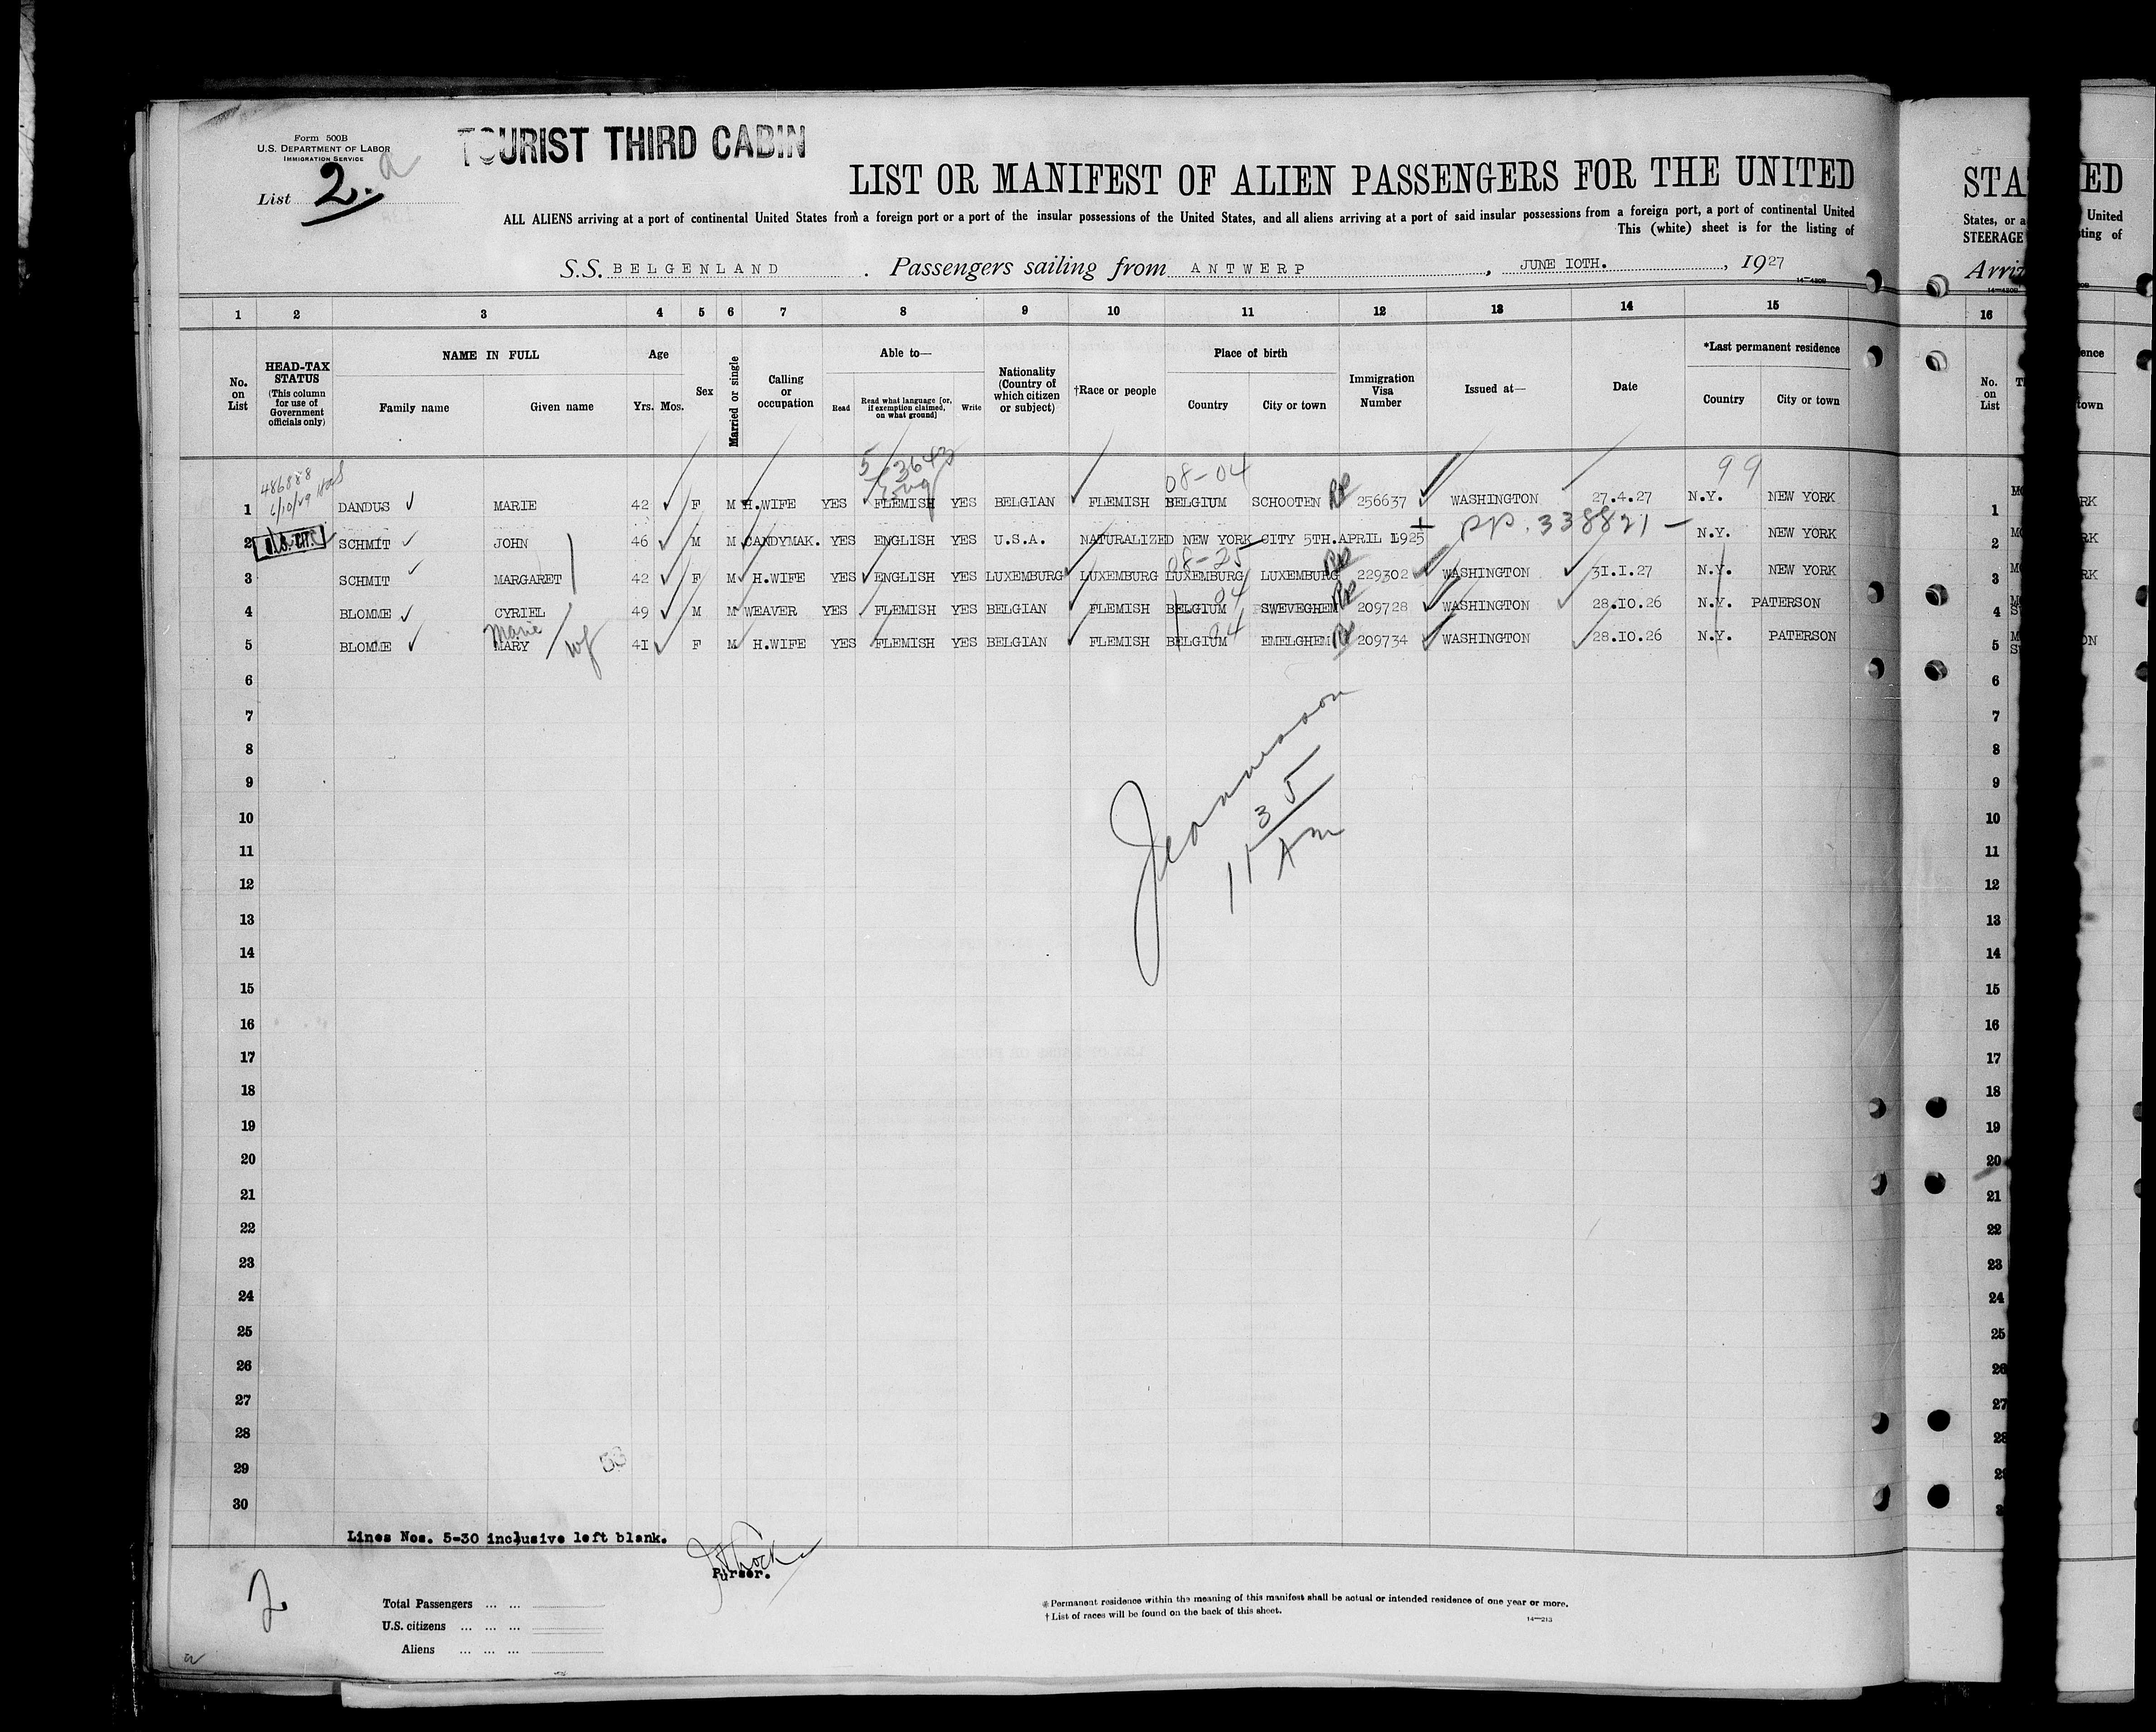 Form 500B
U.S. DEPARTMENT OF LABOR
IMMIGRATION SERVICE
TOURIST THIRD CABIN
List 2. a
LIST OR MANIFEST OF ALIEN PASSENGERS FOR THE UNITED
ALL ALIENS arriving at a port of continental United States from a foreign port or a port of the insular possessions of the United States, and all aliens arriving at a port of said insular possessions from a foreign port, a port of continental United
This (white) sheet is for the listing of
S.S. BELGENLAND . Passengers sailing from ANTWERP , JUNE IOTH. , 1927
14—430B
1 2 3 4 5 6 7 8 9 10 11 12 13 14 15
No. on List
HEAD-TAX STATUS (This column for use of Government officials only)
NAME IN FULL
Family name Given name
Age
Yrs. Mos.
Sex
Married or single
Calling or occupation
Able to—
Read Read what language [or, if exemption claimed, on what ground] Write
Nationality (Country of which citizen or subject)
†Race or people
Place of birth
Country City or town
Immigration Visa Number
Issued at—
Date
*Last permanent residence
Country City or town
486888
6/10/29
08-04
99
1 DANDUS MARIE 42 F M H.WIFE YES FLEMISH YES BELGIAN FLEMISH BELGIUM SCHOOTEN 256637 WASHINGTON 27.4.27 N.Y. NEW YORK
2 U.S. CIT. SCHMIT JOHN 46 M M CANDYMAK. YES ENGLISH YES U.S.A. NATURALIZED NEW YORK CITY 5TH.APRIL 1925 PP. 338821 — N.Y. NEW YORK
08-25
3 SCHMIT MARGARET 42 F M H.WIFE YES ENGLISH YES LUXEMBURG LUXEMBURG LUXEMBURG LUXEMBURG 229302 WASHINGTON 31.I.27 N.Y. NEW YORK
04
4 BLOMME CYRIEL 49 M M WEAVER YES FLEMISH YES BELGIAN FLEMISH BELGIUM SWEVEGHEM 209728 WASHINGTON 28.IO.26 N.Y. PATERSON
Marie
04
5 BLOMME MARY wf 4I F M H.WIFE YES FLEMISH YES BELGIAN FLEMISH BELGIUM EMELGHEM 209734 WASHINGTON 28.IO.26 N.Y. PATERSON
6
7
8
9
10
11
12
13
14
15
16
17
18
19
20
21
22
23
24
25
26
27
28
29
30
11 35
AM
53
Lines Nos. 5-30 inclusive left blank.
Purser.
2
Total Passengers ... ...
U.S. citizens ... ... ...
Aliens ... ... ...
* Permanent residence within the meaning of this manifest shall be actual or intended residence of one year or more.
† List of races will be found on the back of this sheet.
14—213
STA
States, or a
STEERAGE
14—430B
16
No. on List
1
2
3
4
5
6
7
8
9
10
11
12
13
14
15
16
17
18
19
20
21
22
23
24
25
26
27
28
ED
United